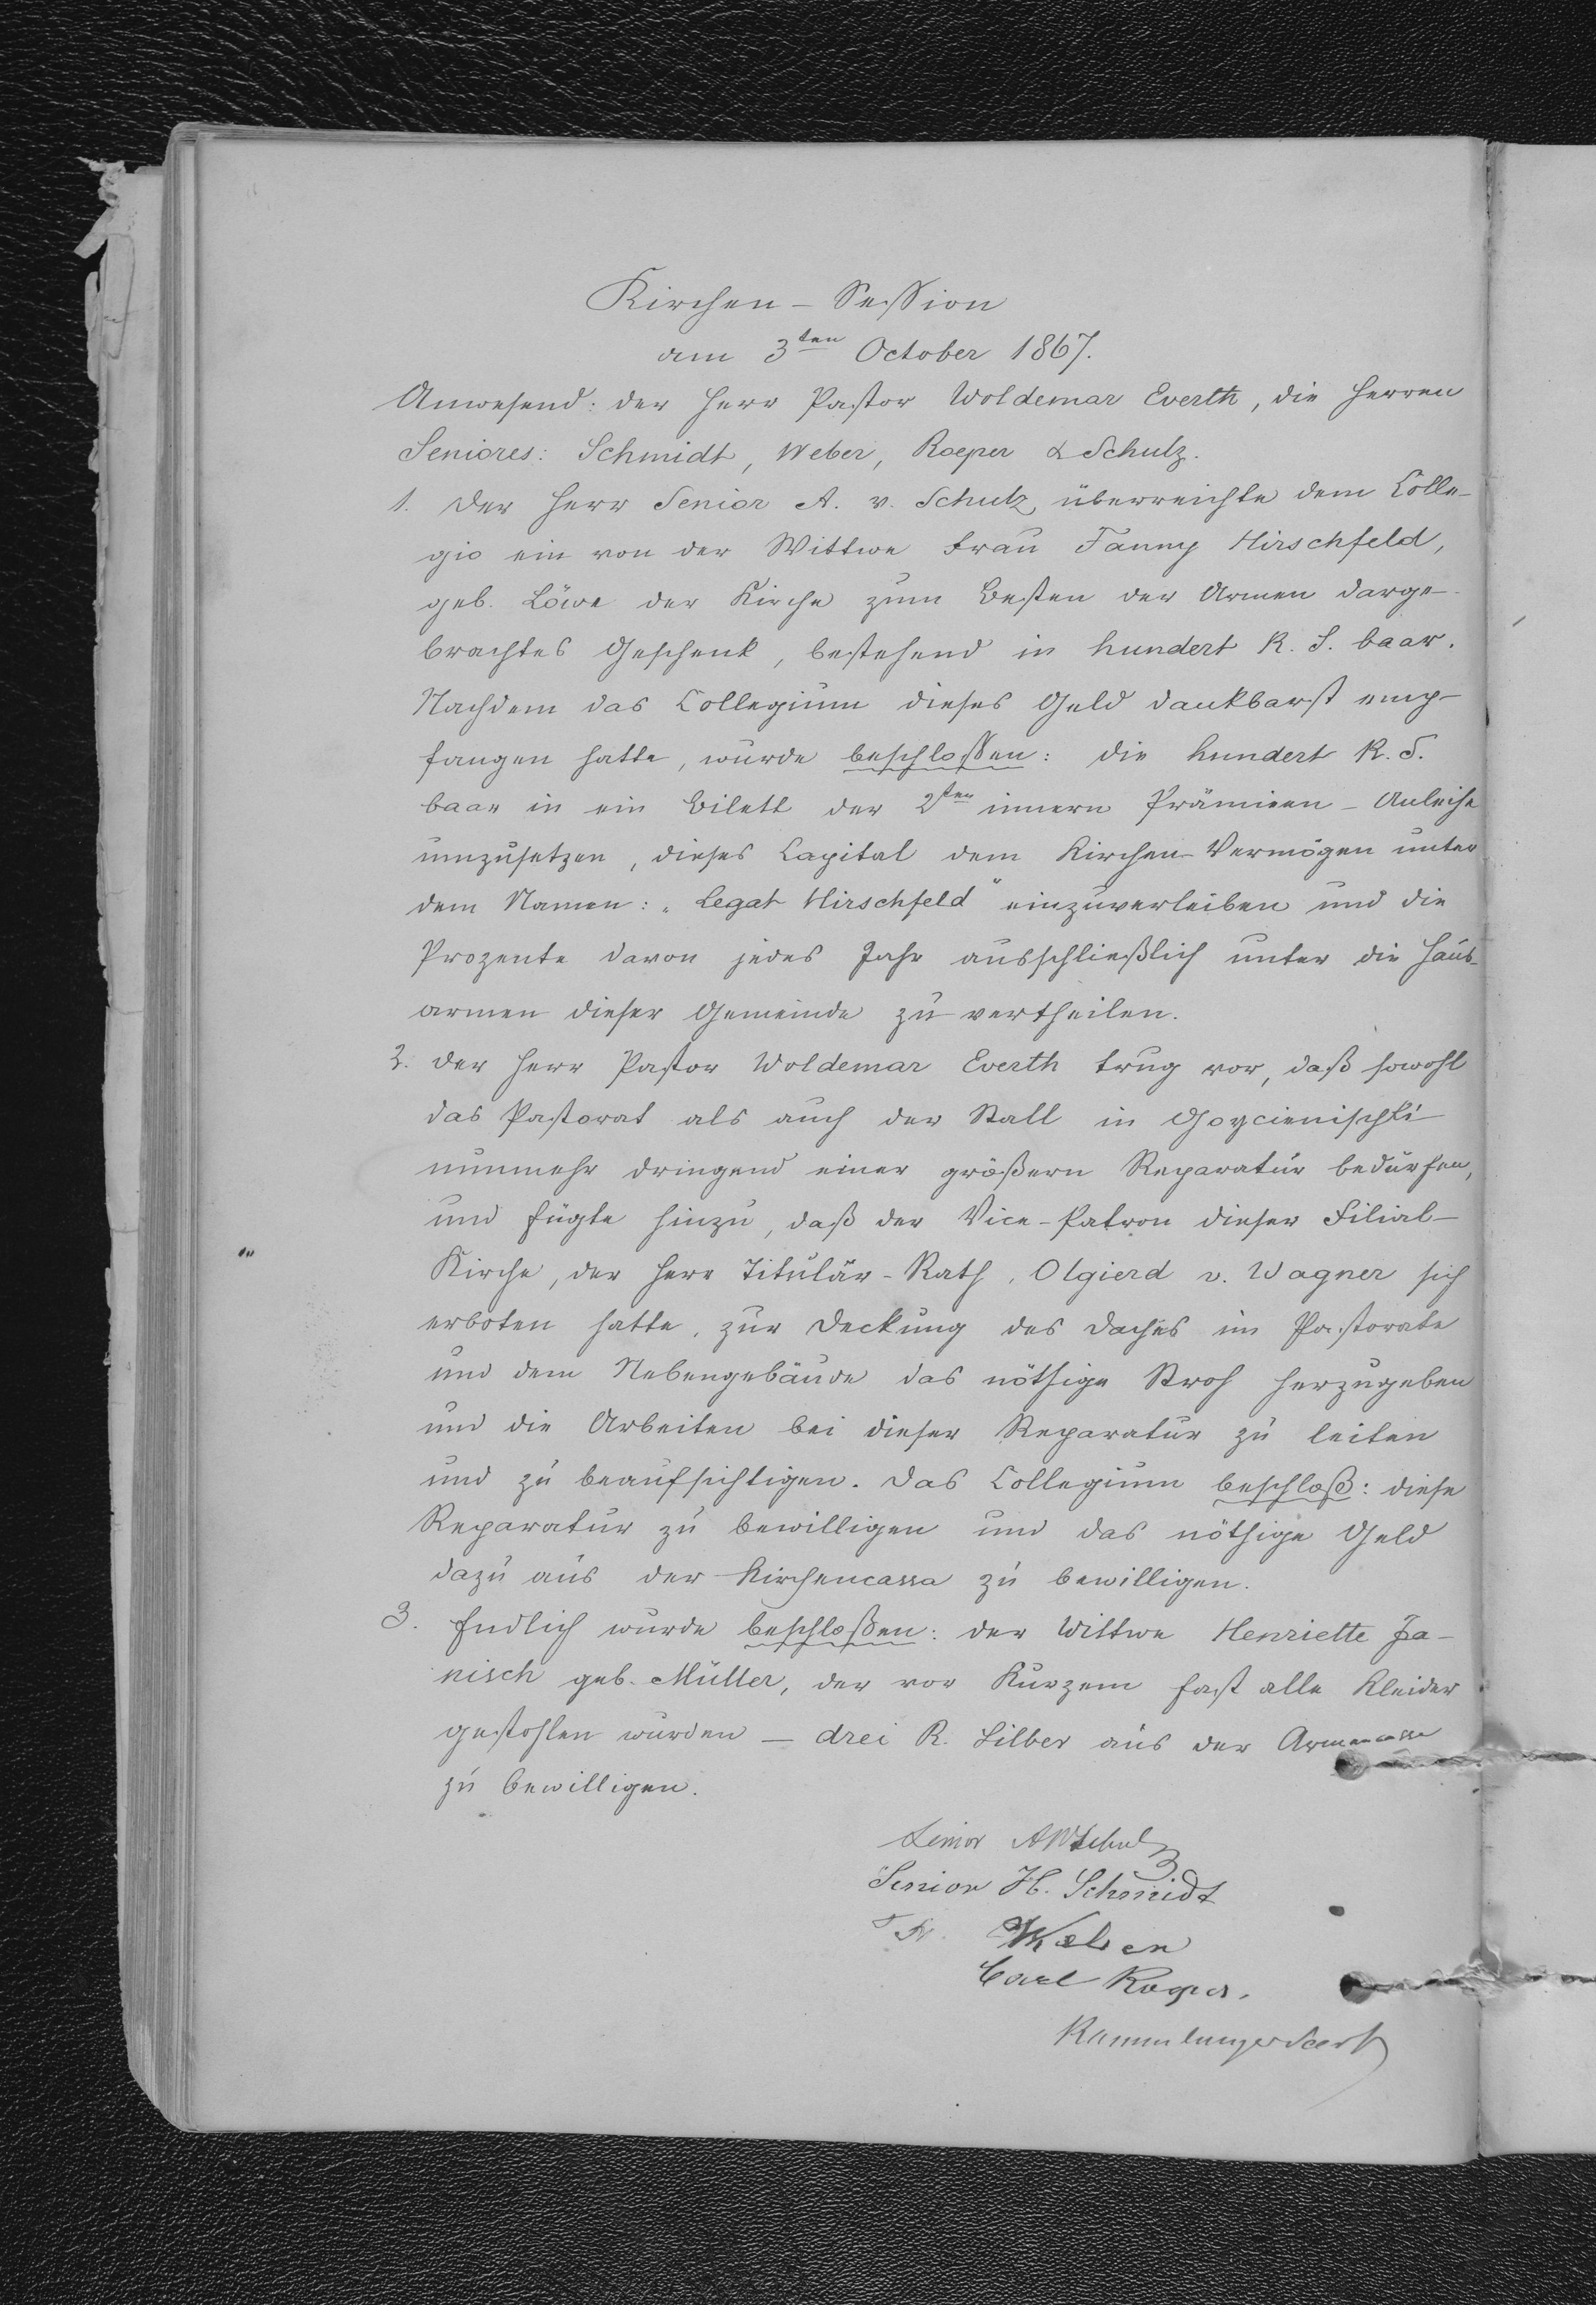 Kirchen-Session
am 3ten October 1867.
Anwesend: der Herr Pastor Woldemar Everth, die Herren
Seniores: Schmidt, Weber, Roeper & Schulz.
1. Der Herr Senior A. v. Schulz, überreichte dem Colle-
gio ein von der Wittwe Frau Fanny Hirschfeld,
geb. Löwe der Kirche zum Besten der Armen darge-
brachtes Geschenk, bestehend in hundert R. S. baar.
Nachdem das Collegium dieses Geld dankbarst emp-
fangen hatte, wurde beschloßen: die hundert R. S.
baar in ein Bilett der 2ten innern Prämien-Anleihe
umzusetzen, dieses Capital dem Kirchen-Vermögen unter
dem Namen: „Legat Hirschfeld" einzuverleiben und die
Prozente davon jedes Jahr ausschließlich unter die Haus-
armen dieser Gemeinde zu vertheilen.
2. Der Herr Pastor Woldemar Everth trug vor, daß sowohl
das Pastorat als auch der Stall in Goycienischki
nunmehr dringend einer größern Reparatur bedürfen,
und fügte hinzu, daß der Vice-Patron dieser Filial-
Kirche, der Herr Titulär-Rath, Olgierd v. Wagner sich
erboten hatte, zur Deckung des Daches im Pastorate
und dem Nebengebäude das nöthige Stroh herzugeben
und die Arbeiten bei dieser Reparatur zu leiten
und zu beaufsichtigen. Das Collegium beschloß: diese
Reparatur zu bewilligen und das nöthige Geld
dazu aus der Kirchencassa zu bewilligen.
3. Endlich wurde beschloßen: der Wittwe Henriette Ja-
nisch geb. Müller, der vor Kurzem fast alle Kleider
gestohlen wurden – drei R. Silber aus der Armencasse
zu bewilligen.
Senior A v Schulz
Senior H. Schmidt
Weber
Carl Roeper.